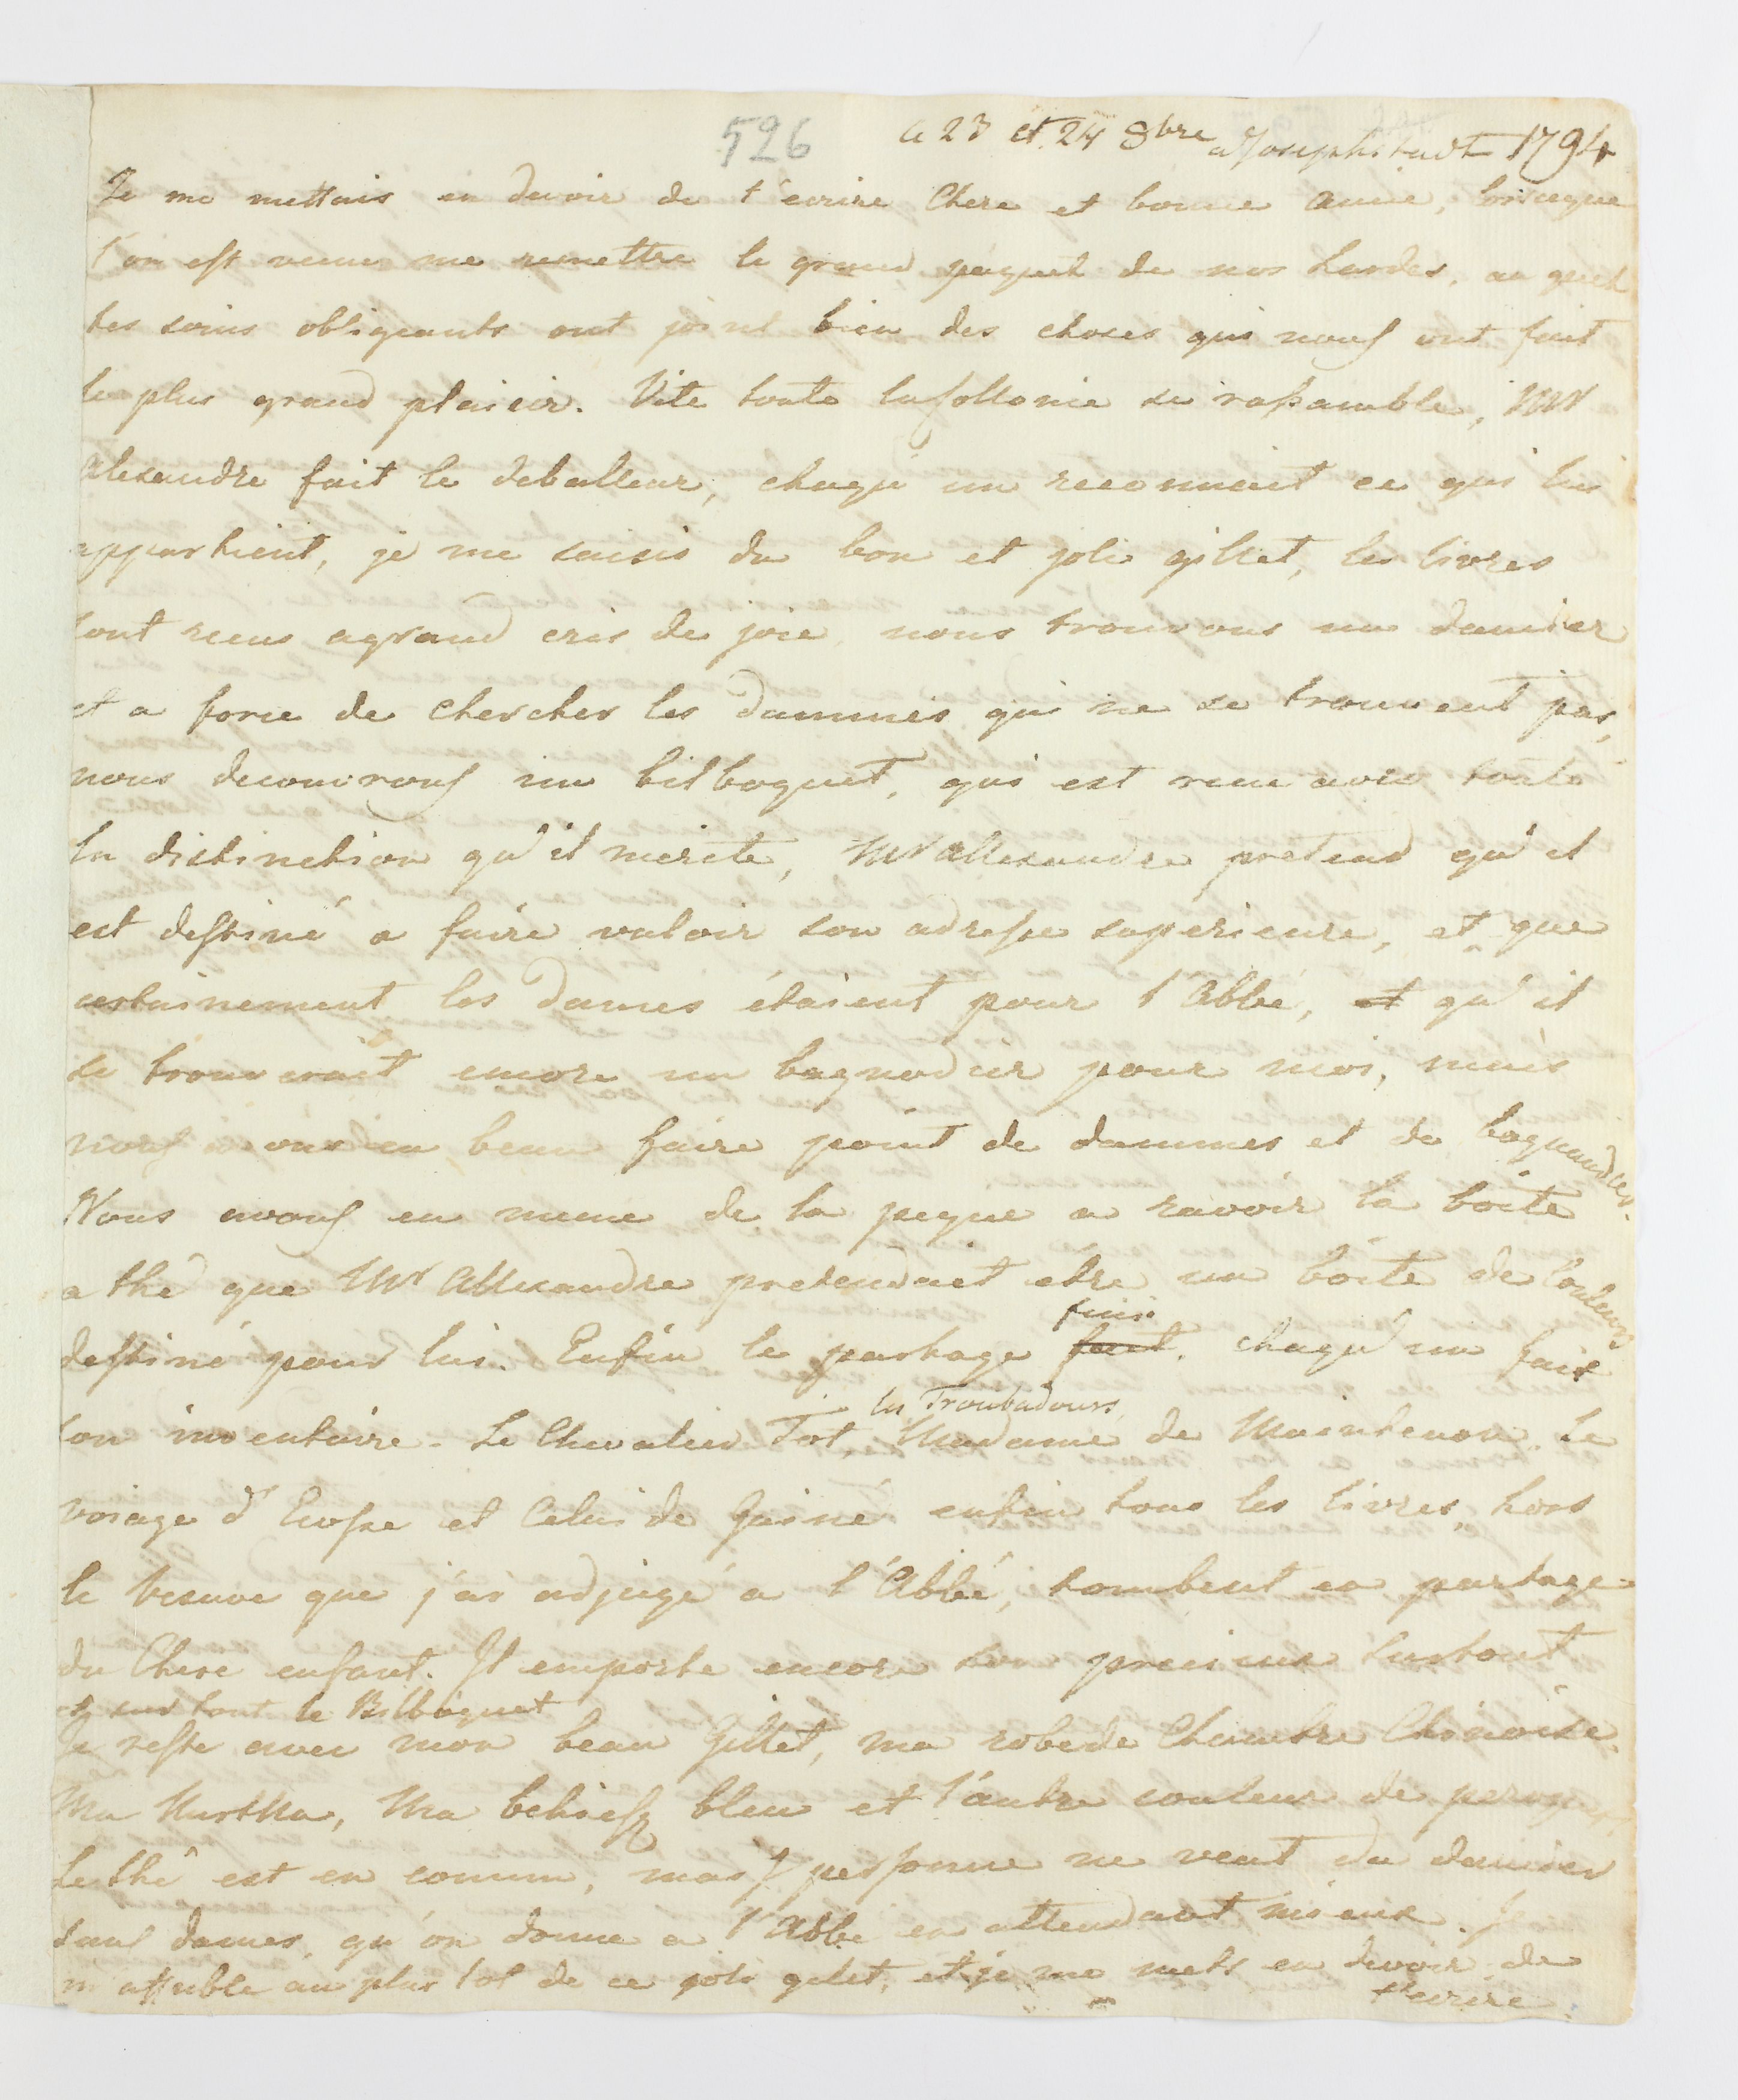 526
le 23 et 24 8bre a Josephstadt 1794
Je me mettais en devoir de t'ecrire Chere et bonne amie, lorsque
l'on est venue me remettre le grand paquet de nos hardes, au quel
tes soins obligeants ont joint bien des choses qui nous ont fait
le plus grand plaisir. Vite toute la collonie se rassamble, Mr
Alexandre fait le deballeur, chaqu'un reconnait ce qui lui
appartient, je me saisis du bon et joli gillet, les livres
sont recus a grand cris de joie, nous trouvons un damier
et a force de chercher les dammes qui ne se trouvent pas,
nous decouvrons un bilboquet, qui est recu avec toute
la distinction qu'il merite, Mr Allexandre pretend qu'il
est destiné a faire valoir son adresse superieure, et que
certainement les dames étaient pour l'Abbé, et qu'il
se trouverait encore un bagnodier pour moi, mais
nous avons eu beau faire point de dammes et de bagnaudier.
Nous avons eu meme de la peque a ravoir la boite
a thé que Mr Allexandre pretendait etre un boite de Couleurs
destiné pour lui. Enfin le partage fait, chaqu'un fait
fini
son inventaire. Le Chevalier Tort, Madame de Maintenon. Le
les Troubadours,
voiage d'Ecosse et Celui de Guiné enfin tous les livres, hors
le Vesuve que j'ai adjugé a l'Abbé, tombent en partage
du Chere enfant. Il emporte encore son precieux surtout
et sur tout le Bilboquet
Je reste avec mon beau Gillet, ma robe de Chambre Chinoise.
Ma Ma bleu et l'autre couleur de
Le thé est en comun, mais personne ne veut du damier
sans dames, qu'on donne a l'Abbé en attendant mieux. Je
m'affuble au plus tot de ce joli gilet, et je me mets en devoir de
t'ecrire.